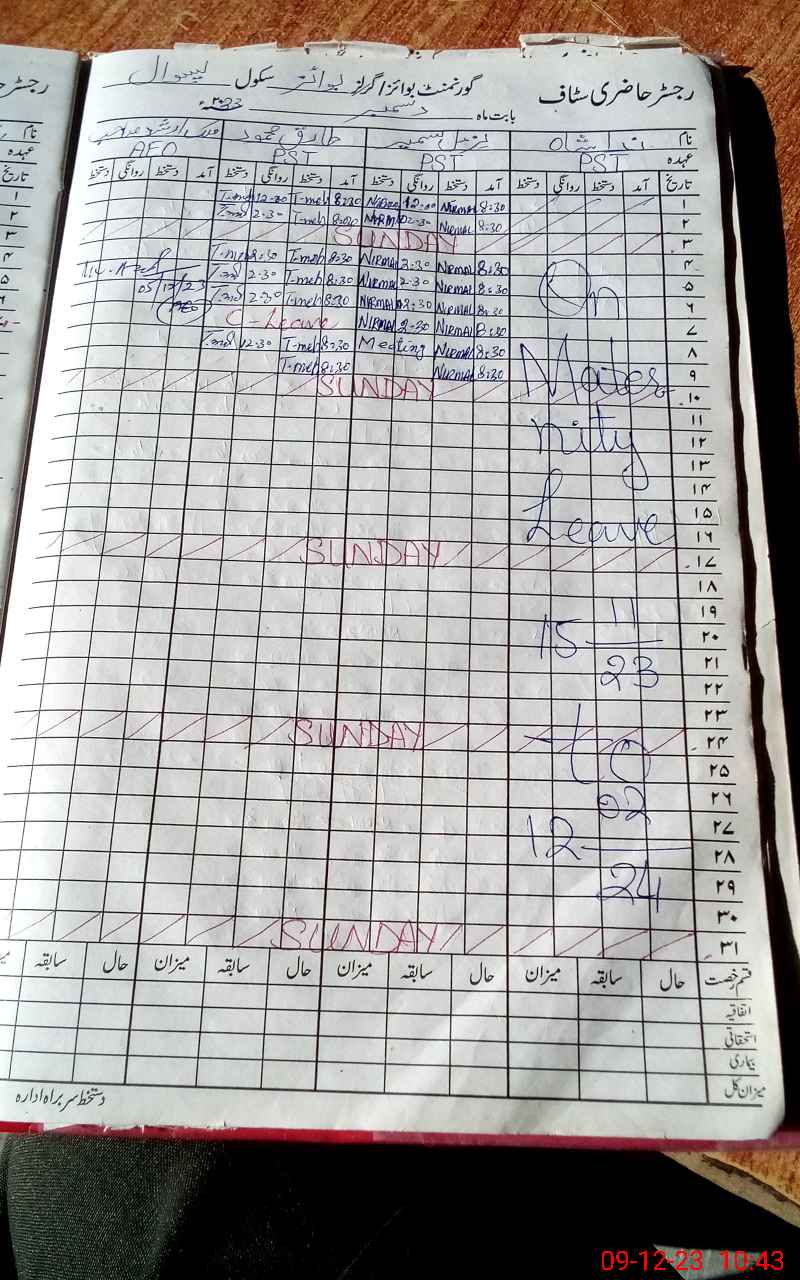 رجسٹر حاضری سٹاف گورنمنٹ بوائز/گرلز بوائز سکول
بابت ماہ دسمبر 2023ء
نام ندا شاہ نرمل سمیر طارق محمود
عہدہ PST PST PST AEO
تاریخ آمد دستخط روانگی دستخط آمد دستخط روانگی دستخط آمد دستخط روانگی دستخط آمد دستخط روانگی دستخط
۱ 8:30 NIRMAL 12:00 8:30 T.meh 12:00
۲ 8:30 NIRMAL 2:30 NIRMAL 8:30 T.meh 2:30
۳ SUNDAY
۴ 8:30 NIRMAL 2:30 NIRMAL 8:30 T.meh
۵ 8:30 NIRMAL 2:30 NIRMAL 8:30 T.meh 2:30 05/12/23
۶ On 8:30 NIRMAL 2:30 NIRMAL 8:30 T.meh 2:30 AEO
۷ 8:30 NIRMAL 2:30 NIRMAL C-Leave
۸ 8:30 NIRMAL Meeting 8:30 T.meh 12:30
۹ Mater 8:30 NIRMAL 8:30 T.meh
۱۰ SUNDAY
۱۱
۱۲ nity
۱۳
۱۴
۱۵
۱۶ Leave
۱۷ SUNDAY
۱۸
۱۹ 11
۲۰ 15
۲۱ 23
۲۲
۲۳
۲۴ SUNDAY
۲۵ to
۲۶ 02
۲۷
۲۸ 12
۲۹ 24
۳۰
۳۱ SUNDAY
قسم رخصت حال سابقہ میزان حال سابقہ میزان حال سابقہ میزان حال سابقہ
اتفاقیہ
استحقاقی
بیماری
میزان کل
دستخط سربراہ ادارہ
09-12-23 10:43